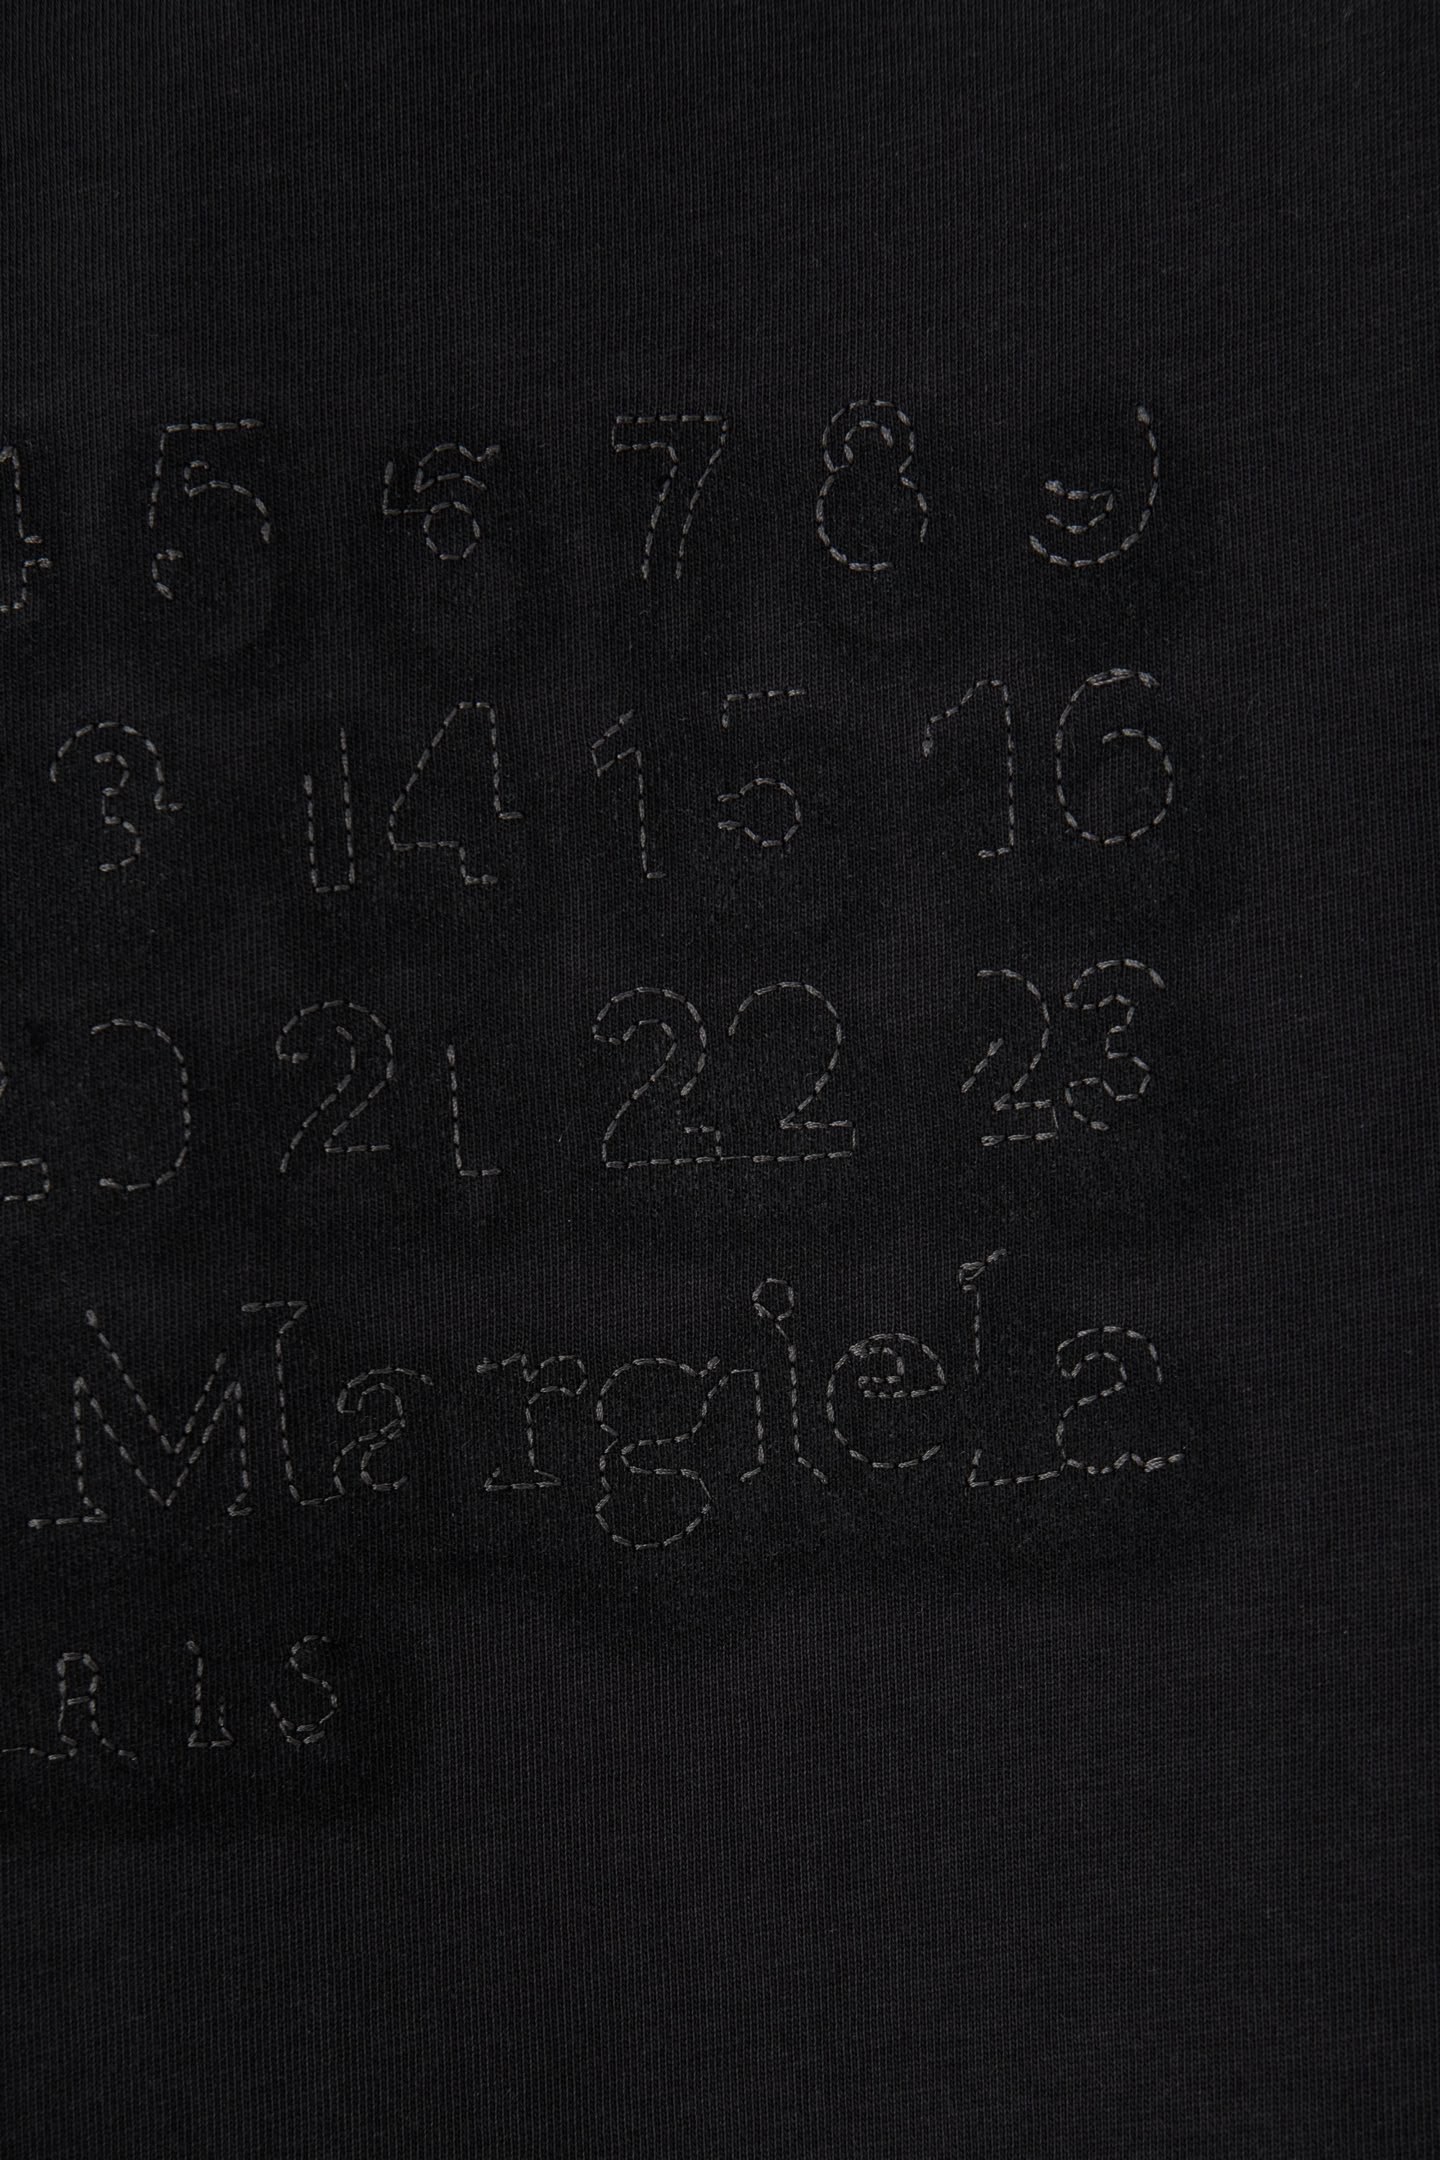 4 5 6 7 8 9
3 14 15 16
20 21 22 23
Margiela
RIS